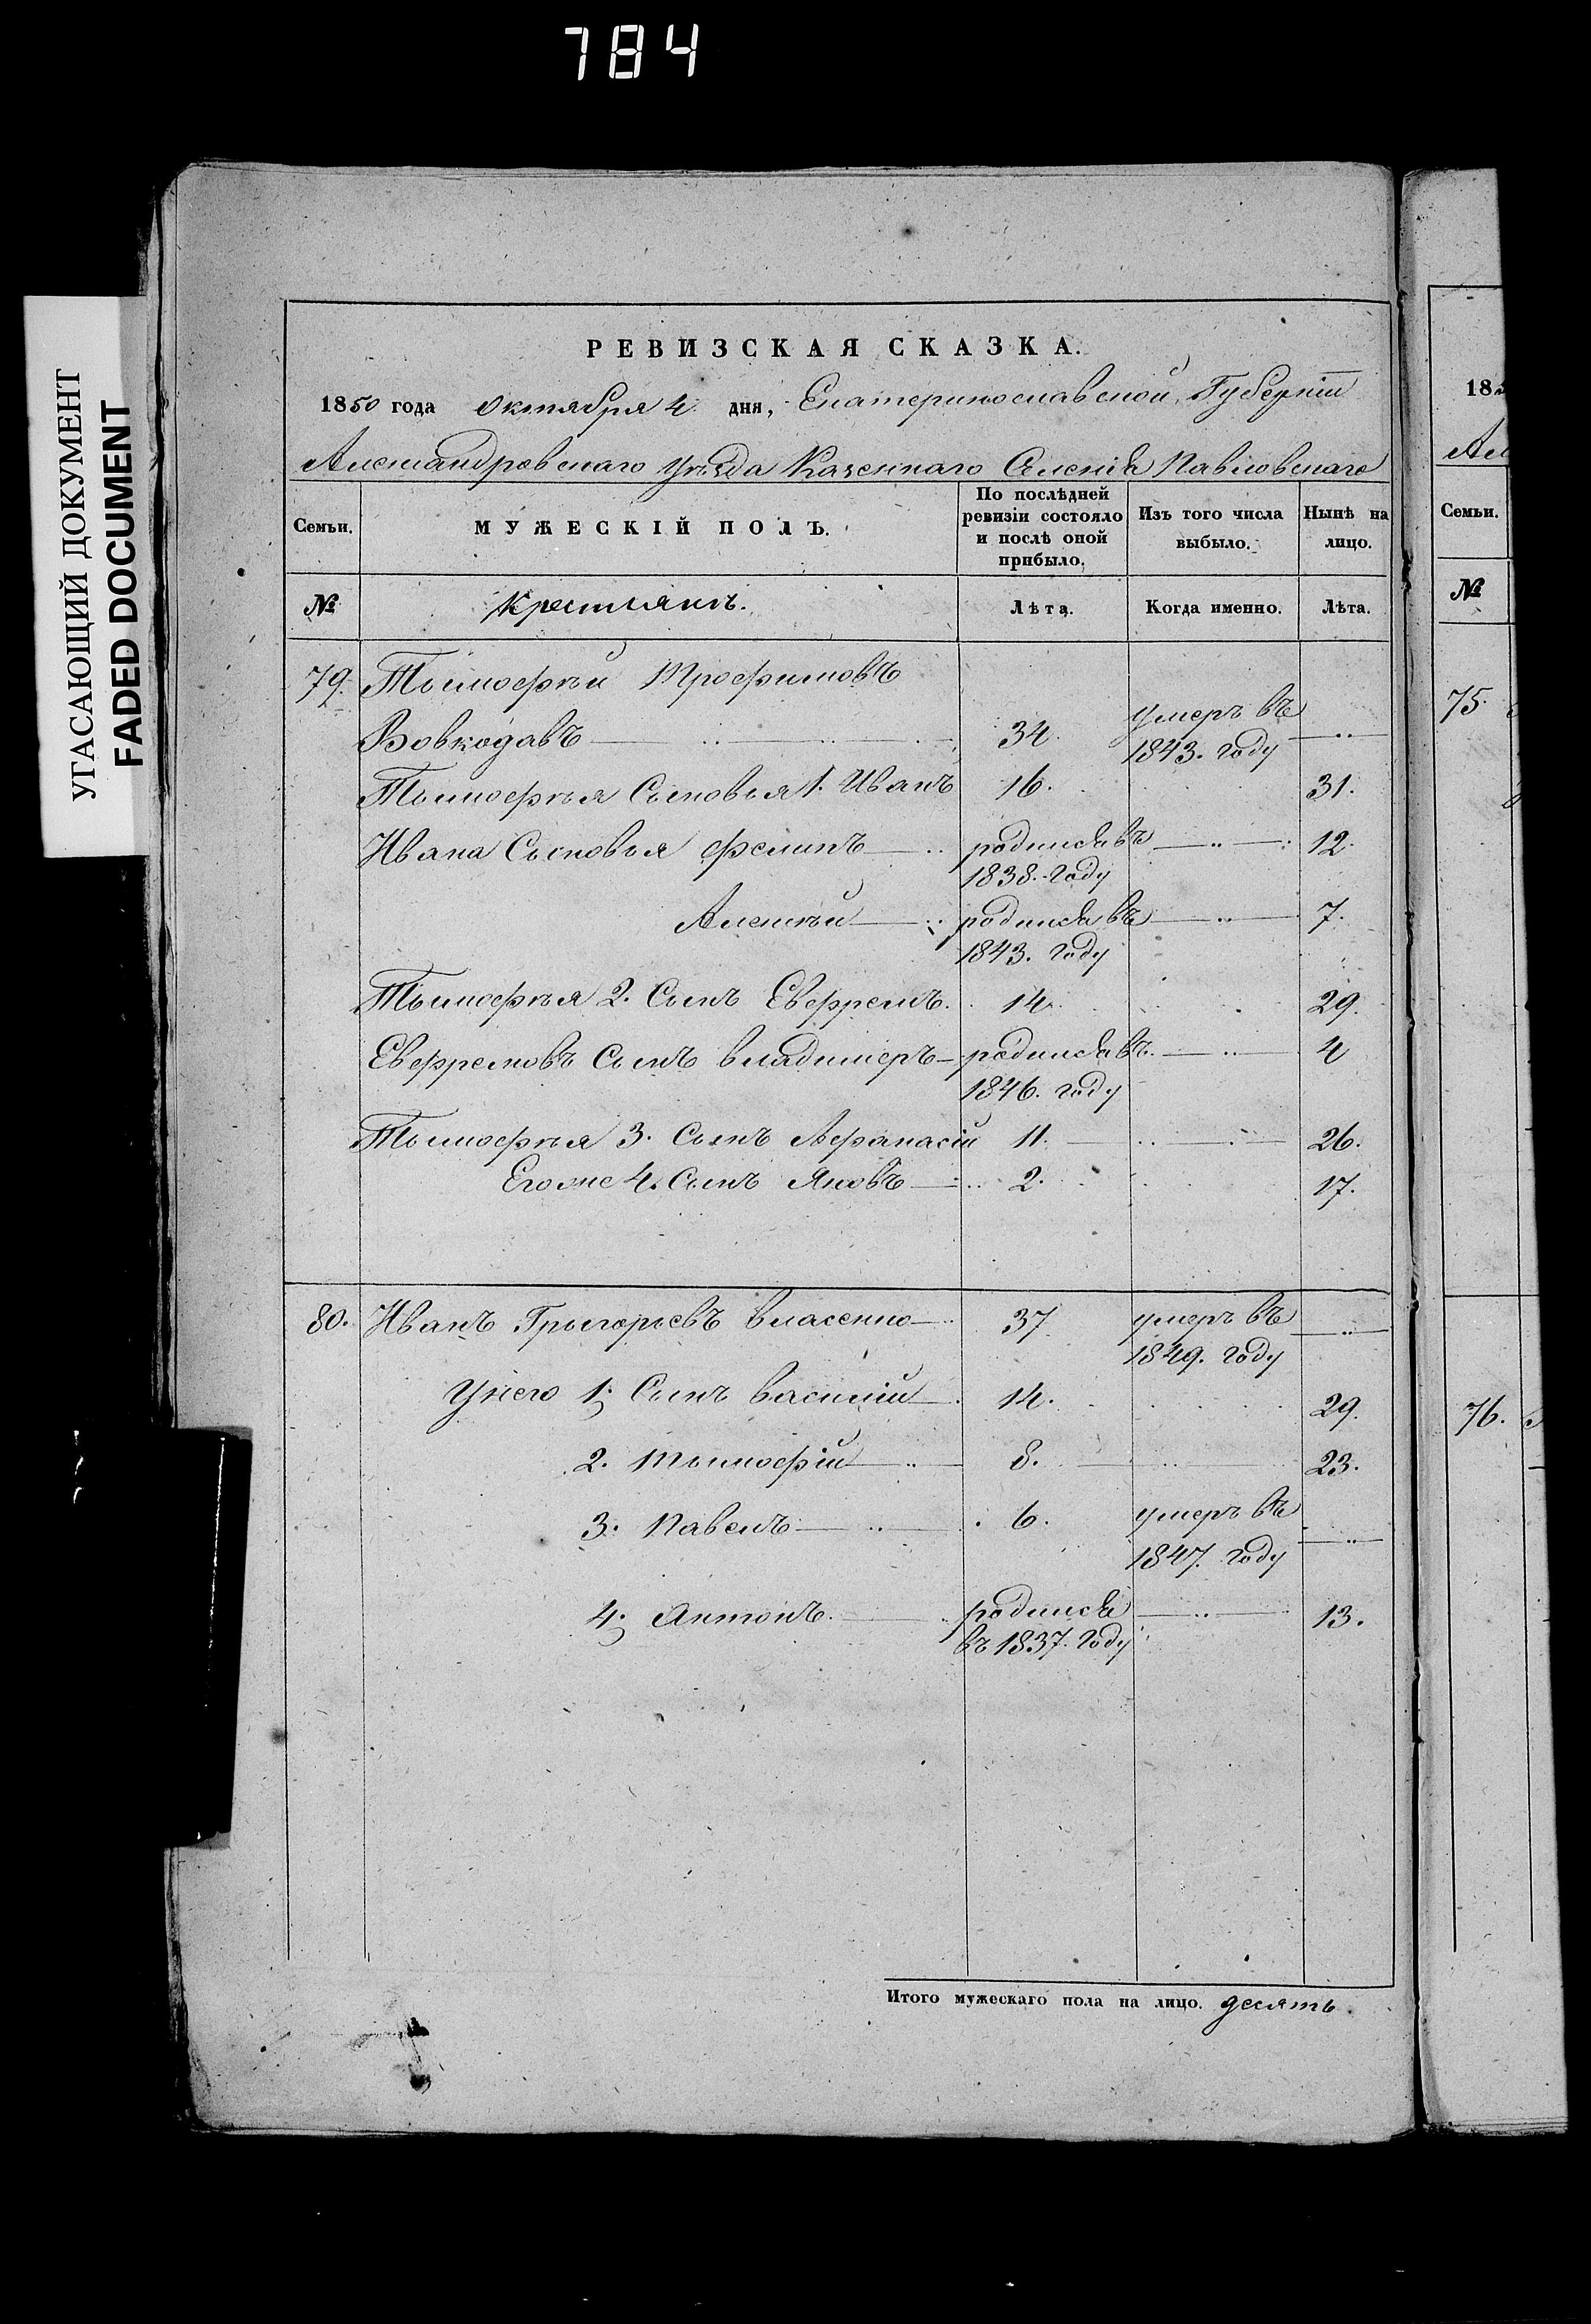 784
УГАСАЮЩИЙ ДОКУМЕНТ
FADED DOCUMENT
РЕВИЗСКАЯ СКАЗКА.
1850 года Октября 4 дня, Екатеринославской Губерніи
Александровскаго Уѣзда Казеннаго Селенія Павловскаго
Семьи. МУЖЕСКІЙ ПОЛЪ. По послѣдней ревизіи состояло и послѣ оной прибыло. Изъ того числа выбыло. Нынѣ на лицо.
№ Крестьянъ. Лѣта. Когда именно. Лѣта.
79. Тымофѣй Трофимовъ
Вовкодавъ 34. умеръ въ 1843. году
Тымофѣя Сыновья 1. Иванъ 16. 31.
Ивана Сыновья Филипъ родился въ 1838. году 12.
Алексѣй родился въ 1843. году 7.
Тымофѣя 2. Сынъ Евфремъ. 14. 29.
Евфремовъ Сынъ владимеръ родился въ 1846. году 4
Тымофѣя 3. Сынъ Афанасій 11. 26.
Егоже 4. Сынъ Яковъ 2. 17.
80. Иванъ Грыгорьевъ власенко 37 умеръ въ 1849. году
Унего 1. Сынъ василій 14. 29.
2. Тымофій 8. 23.
3. Павелъ 6. умеръ въ 1847. году
4. Антонъ. родился въ 1837. году 13.
Итого мужескаго пола на лицо. десять.
18
Ал
Семьи.
№
75.
76.